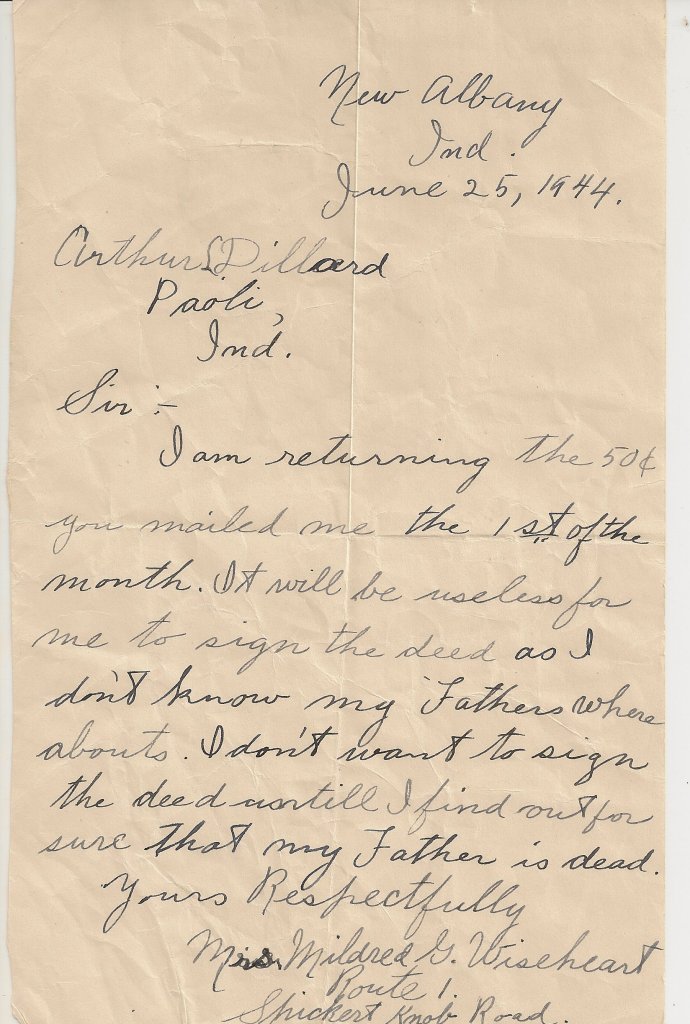 New Albany
Ind.
June 25, 1944.
Arthur L Dillard
Paoli,
Ind.
Sir:-
I am returning the 50¢
you mailed me the 1st of the
month. It will be useless for
me to sign the deed as I
don't know my Fathers where
abouts. I don't want to sign
the deed untill I find out for
sure that my Father is dead.
Yours Respectfully
Mrs. Mildred G. Wiseheart
Route 1.
Spickert Knob Road.